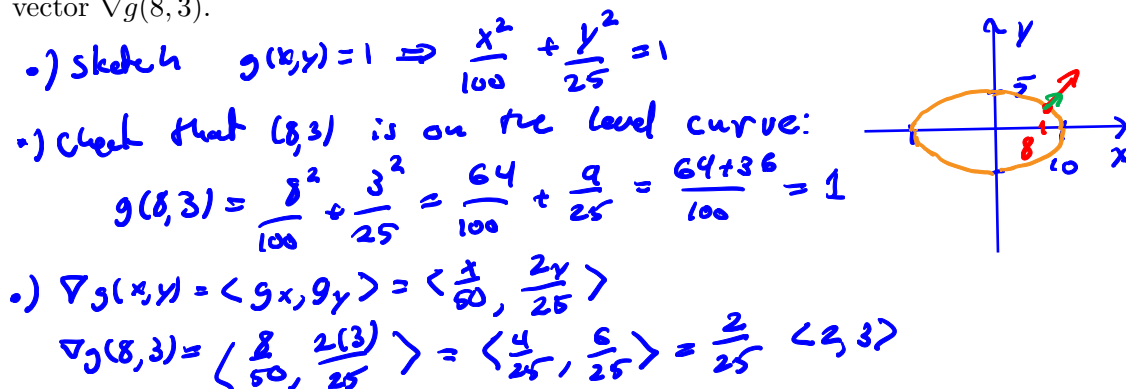 vector ∇g(8, 3).
•) Sketch g(x,y) = 1 ⇒ x²/100 + y²/25 = 1
•) Check that (8,3) is on the level curve:
g(8,3) = 8²/100 + 3²/25 = 64/100 + 9/25 = (64+36)/100 = 1
•) ∇g(x,y) = <gx, gy> = <x/50, 2y/25>
∇g(8,3) = <8/50, 2(3)/25> = <4/25, 6/25> = 2/25 <2,3>
y
5
8
10
x